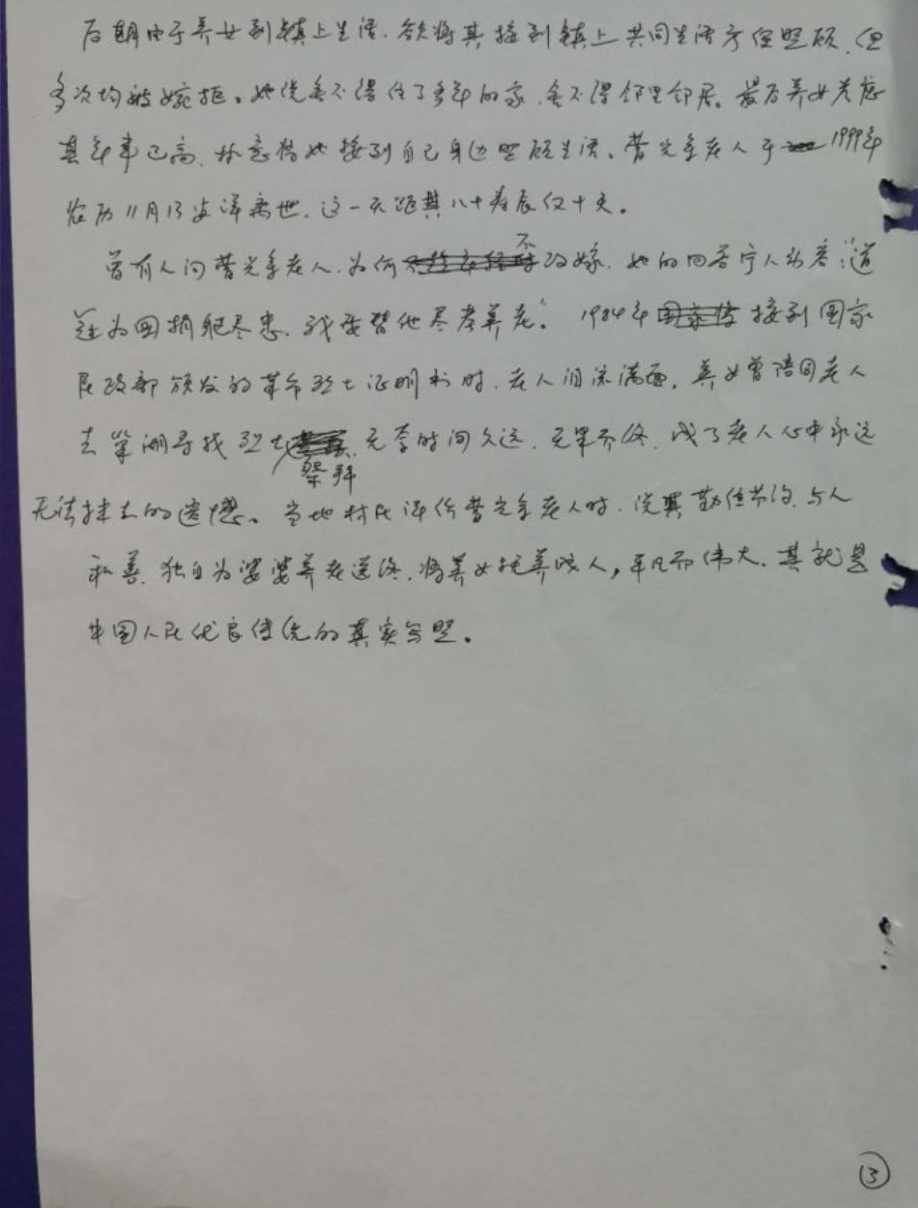 后期由于养女到镇上生活，欲将其接到镇上共同生活方便照顾，但
多次均被婉拒。她说舍不得住了多年的家，舍不得邻里邻居。最后养女考虑
其年事已高，将她接到自己身边照顾生活。曹光会老人于1999年
农历11月13安详离世，这一天距其八十寿辰仅十天。
曾有人问曹光会老人，为何不改嫁，她的回答令人动容：“道
为国捐躯尽忠，我要替他尽孝养老”。1984年接到国家
民政部颁发的革命烈士证明书时，老人泪流满面，养女曾陪同老人
去巢湖寻找烈士祭拜，无奈时间久远，无果而终，成了老人心中永远
无法抹去的遗憾。当地村民评价曹光会老人时，说其勤俭节约，与人
和善，独自为婆婆养老送终，将养女抚养成人，平凡而伟大，其就是
中国人民优良传统的真实写照。
③